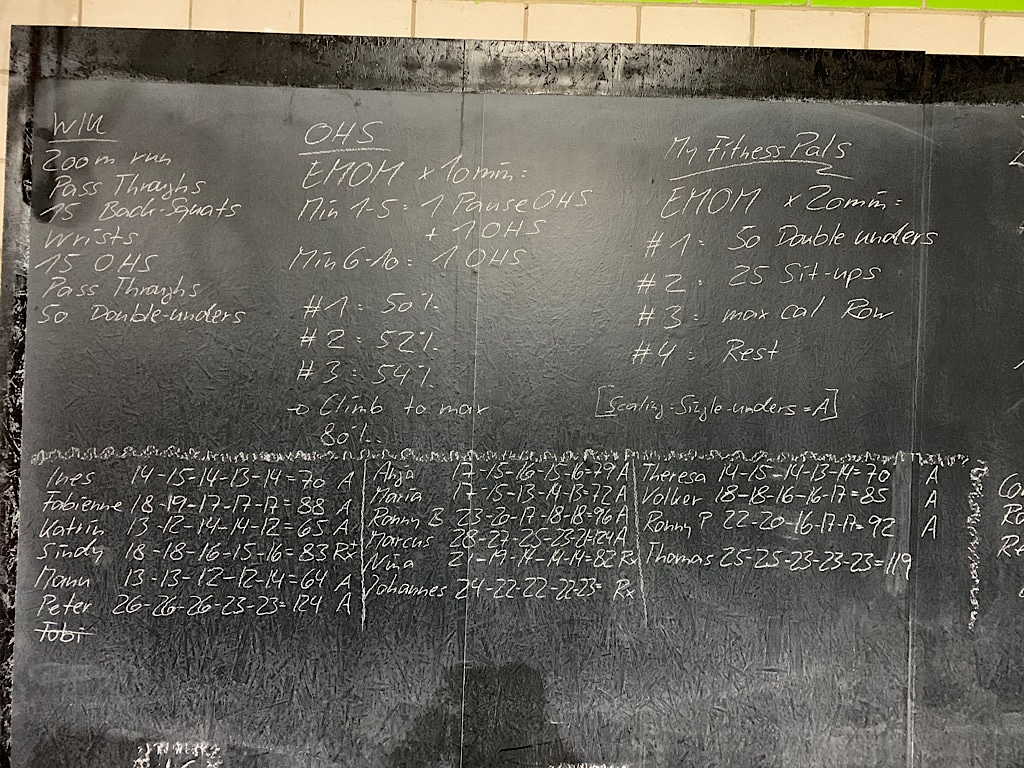 W/U
200m run
Pass Throughs
15 Back-Squats
Wrists
15 OHS
Pass Throughs
50 Double-unders
OHS
EMOM x 10min:
Min 1-5: 1 Pause OHS
+ 1 OHS
Min 6-10: 1 OHS
#1: 50%
#2: 52%
#3: 54%
→ Climb to max
80%
My Fitness Pals
EMOM x 20min:
#1: 50 Double unders
#2: 25 Sit-ups
#3: max cal Row
#4: Rest
[Scaling: Single-unders = A]
Ines 14-15-14-13-14=70 A
Fabienne 18-19-17-17-17=88 A
Katrin 13-12-14-14-12=65 A
Sindy 18-18-16-15-16=83 Rx
Manu 13-13-12-12-14=64 A
Peter 26-26-26-23-23=124 A
Tobi
Anja 17-15-16-15-16=79 A
Maria 17-15-13-14-13=72 A
Ronny B 23-20-17-18-18=96 A
Marcus 28-27-25-23-21=124 A
Nina 21-19-14-14-14=82 Rx
Johannes 24-22-22-22-23= Rx
Theresa 14-15-14-13-14=70 A
Volker 18-18-16-16-17=85 A
Ronny P 22-20-16-17-17=92 A
Thomas 25-25-23-23-23=119